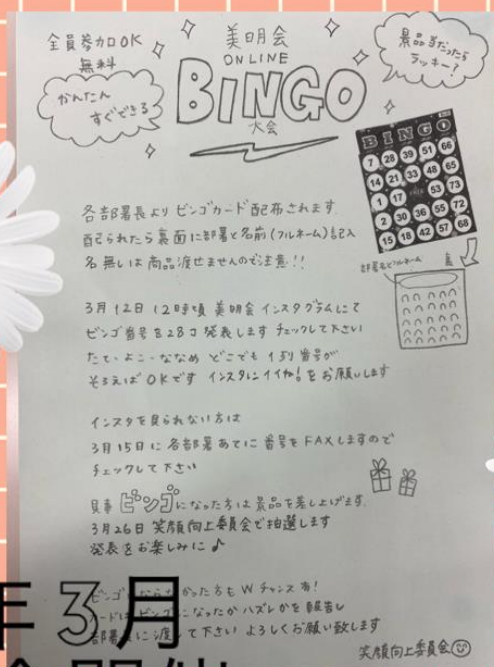 全員参加OK
無料
かんたん
すぐできる
美明会
ONLINE
BINGO
大会
景品当たったら
ラッキー!
BINGO
7 28 39 51 66
14 21 33 48 65
1 17 FREE 53 73
2 30 36 55 72
15 18 42 57 68
部署名とフルネーム
裏
各部署長よりビンゴカード配布されます。
配られたら裏面に部署と名前(フルネーム)記入
名無しは商品渡せませんのでご注意!!
3月12日12時頃 美明会 インスタグラムにて
ビンゴ番号を28コ発表します チェックして下さい
たて・よこ・ななめ どこでも1列番号が
そろえばOKです インスタにイイね!をお願いします
インスタを見られない方は
3月15日に各部署あてに番号をFAXしますので
チェックして下さい
見事ビンゴになった方は景品を差し上げます。
3月26日 笑顔向上委員会で抽選します
発表をお楽しみに♪
ビンゴにならなかった方もWチャンス有!
カードはビンゴになったかハズレかを報告し
部署長に渡して下さい よろしくお願い致します
笑顔向上委員会
年3月